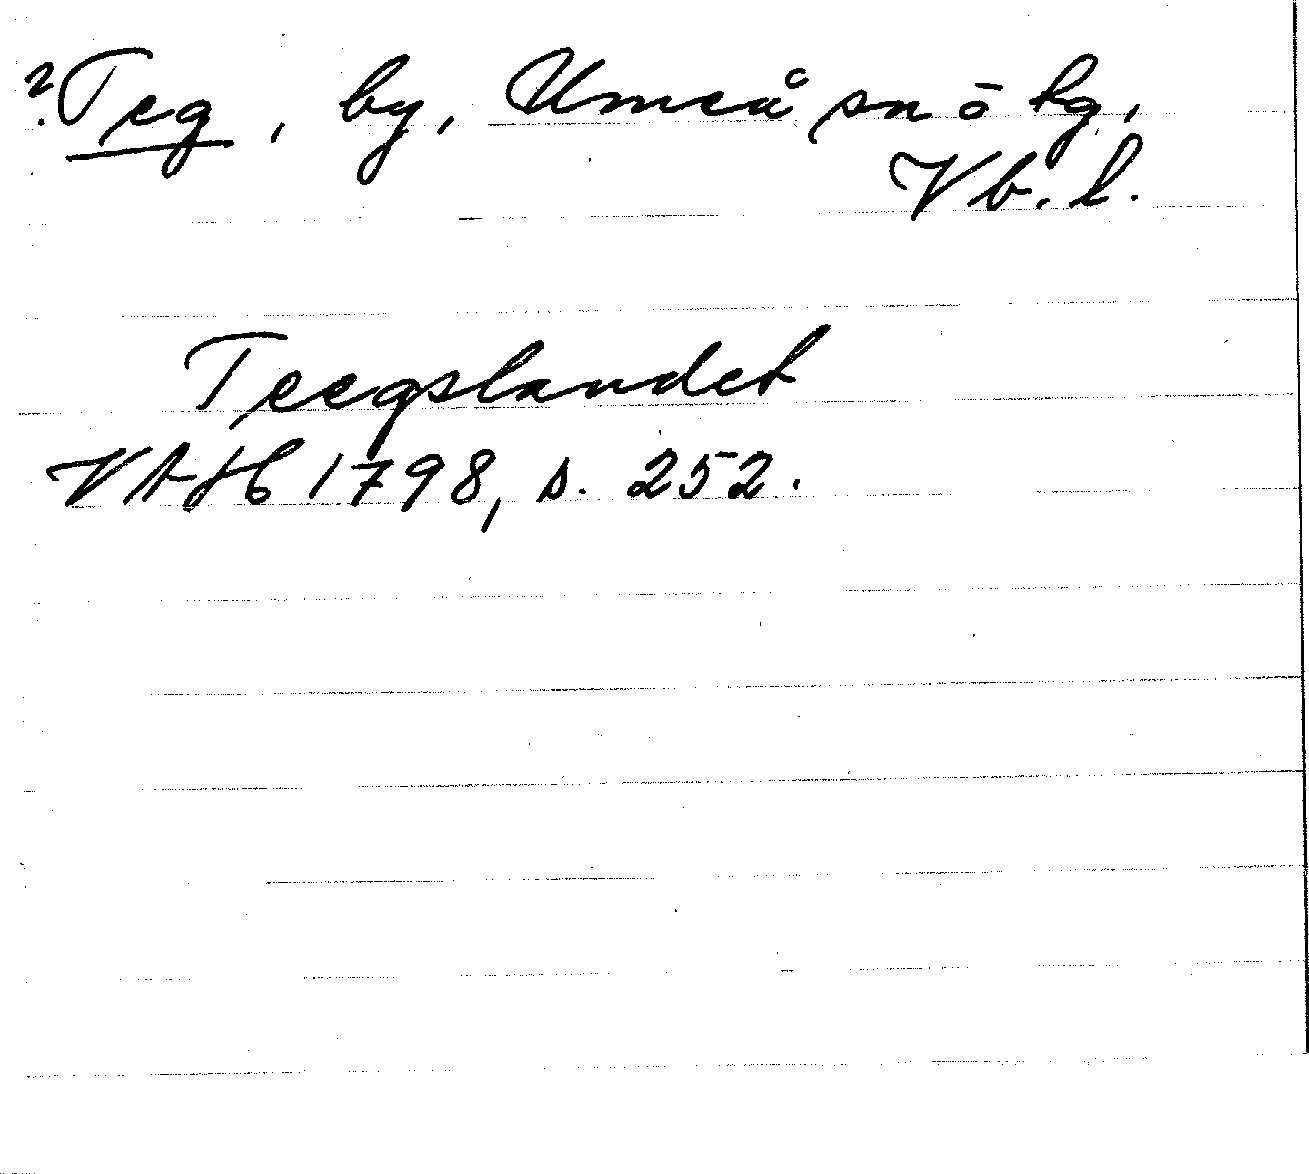 ? Teg, by, Umeå sn o tg,
Vb. l.
Teegslandet
VAH 1798, s. 252.